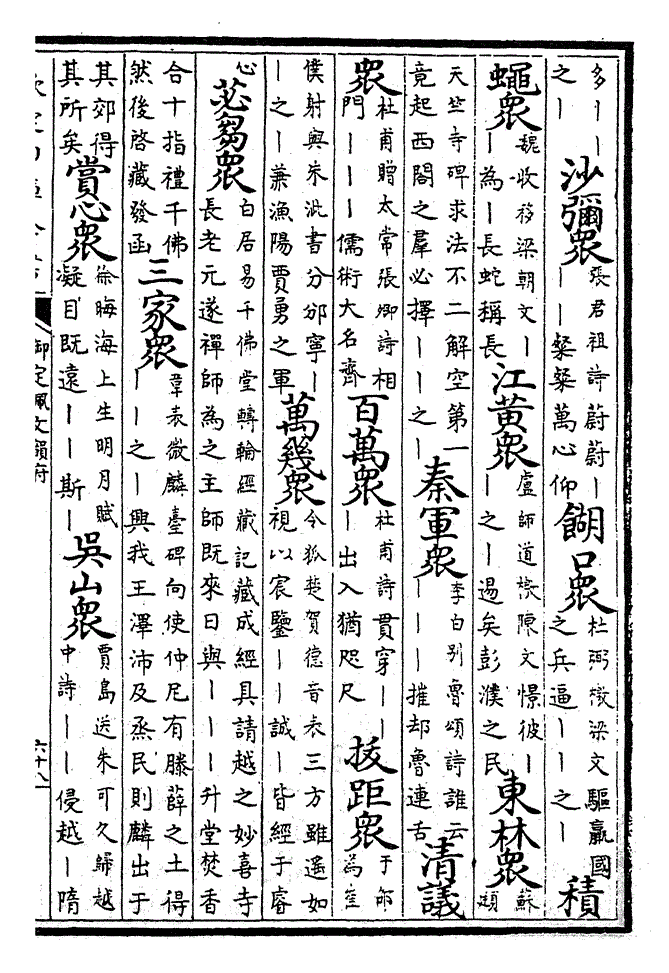 多丨丨之丨 沙彌眾 張君祖詩蔚蔚丨丨丨粲粲萬心仰 餬口眾 杜弼檄梁文驅羸國之兵逼丨丨之丨 積
蠅眾 魏收移梁朝文丨丨為丨長蛇稱長 江黃眾 盧師道檄陳文憬彼丨丨之丨逷矣彭濮之民 東林眾 蘇頲
天竺寺碑求法不二解空第一竟起西閣之羣必擇丨丨之丨 秦軍眾 李白别魯頌詩誰云丨丨丨摧却魯連舌 清議
眾 杜甫贈太常張卿詩相門丨丨丨儒術大名齊 百萬眾 杜甫詩貫穿丨丨丨出入猶咫尺 拔距眾 于邵為崔
僕射與朱泚書分邠寧丨丨之丨兼漁陽賈勇之軍 萬幾眾 令狐楚賀德音表三方雖遥如視以宸鑒丨丨誠丨皆經于睿
心 苾芻眾 白居易千佛堂轉輪經藏記藏成經具請越之妙喜寺長老元遂禪師為之主師既來日與丨丨丨升堂焚香
合十指禮千佛然後啓藏發函 三家眾 韋表微麟臺碑向使仲尼有滕薛之土得丨丨之丨興我王澤沛及烝民則麟出于
其郊得其所矣 賞心眾 徐晦海上生明月賦凝目既遠丨丨斯丨 吳山眾 賈島送朱可久歸越中詩丨丨丨侵越丨隋
御定佩文韻府
六十八